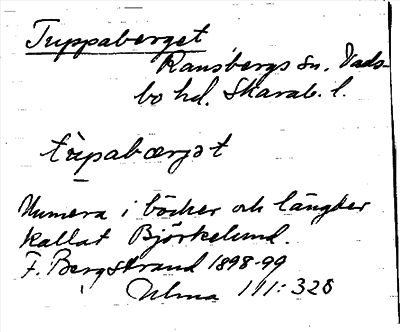 Tuppaberget
Ransbergs sn. Vads-
bo hd. Skarab. l.
tùpabærgət
Numera i böcker och längder
kallat Björkelund.
F. Bergstrand 1898-99
Ulma 111:328